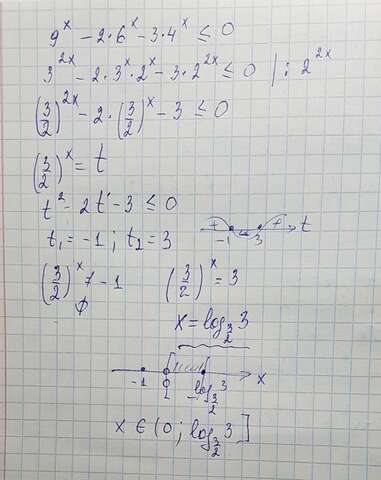 9^x - 2·6^x - 3·4^x ≤ 0
3^{2x} - 2·3^x·2^x - 3·2^{2x} ≤ 0 | : 2^{2x}
(3/2)^{2x} - 2·(3/2)^x - 3 ≤ 0
(3/2)^x = t
t^2 - 2t - 3 ≤ 0
t_1 = -1 ; t_2 = 3
+ - + -1 3 t
(3/2)^x 7 - 1 (3/2)^x = 3
∅
x = log_{3/2} 3
-1 0 log_{3/2} 3 x
x ∈ (0 ; log_{3/2} 3]